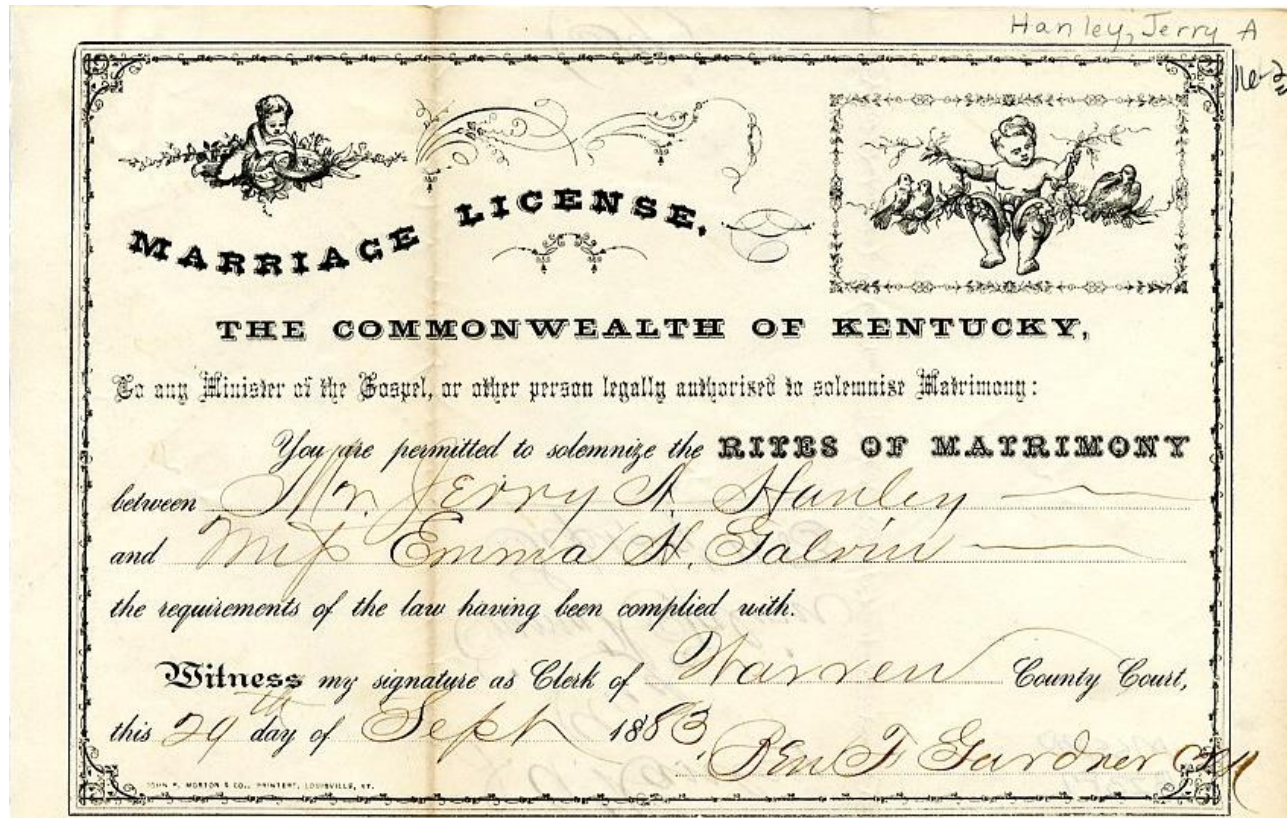 Hanley, Jerry A
MARRIAGE LICENSE,
THE COMMONWEALTH OF KENTUCKY,
To any Minister of the Gospel, or other person legally authorized to solemnize Matrimony:
You are permitted to solemnize the RITES OF MATRIMONY
between Mr. Jerry A. Hanley
and Miss Emma H. Galvin
the requirements of the law having been complied with.
Witness my signature as Clerk of Warren County Court,
this 29th day of Sept 1883
Ben F Gardner Clk
JOHN P. MORTON & CO., PRINTERS, LOUISVILLE, KY.